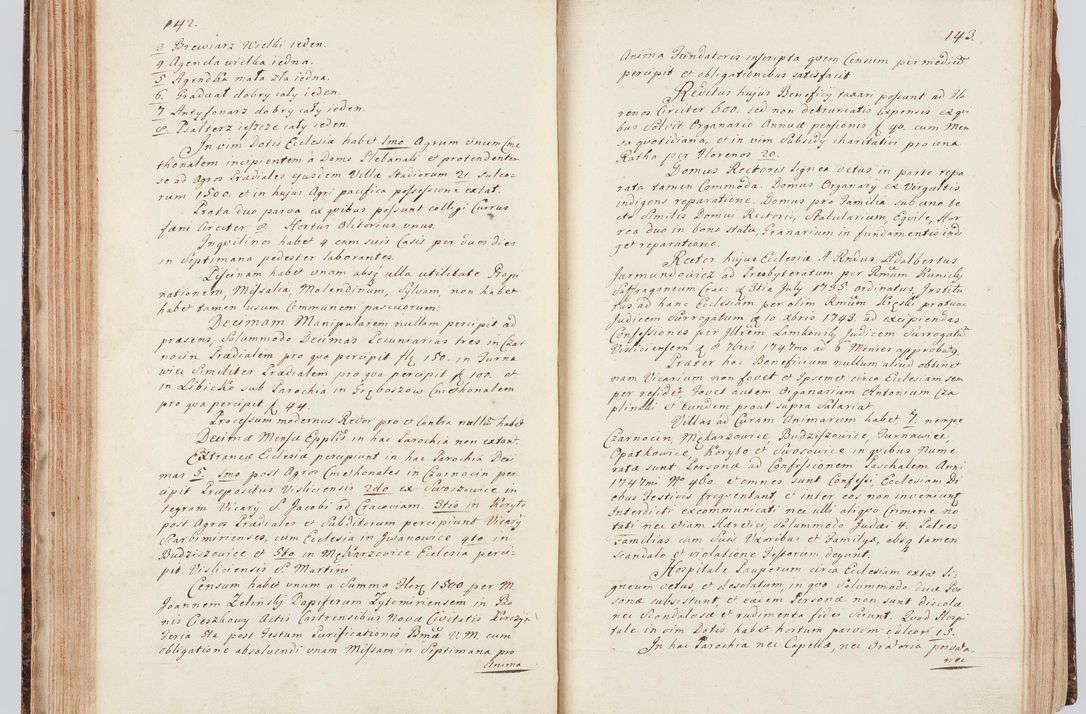 142.
3 Brewiarz Wielki ieden.
4 Agenda wielka iedna.
5 Agendka mała zła iedna.
6. Graduał dobry cały ieden.
7 Antyfonarz dobry cały ieden.
8. Psałterz ieszcze cały ieden.
In vim Dotis Ecclesia habet 1mo Agrum unum Cme
thonalem incipientem a Domo Plebanali et protendentem
se ad Agros Prædiales ejusdem Villæ Stadiorum 21. Sulco-
rum 1500. et in hujus Agri pacifica possessione extat.
Prata duo parva ex quibus possunt colligi Currus
fæni Circiter 8. Hortus Olitorius unus.
Inquilinos habet 4 cum suis Casis per duos dies
in Septimana pedester laborantes.
Piscinam habet unam absq ulla utilitate Propi
nationem, Missalia, Molendinum, Sylvam, non habet
habet tamen usum Communem pascuorum.
Decimam Manipularem nullam percipit ad
præsens, Solummodo Decimas Pecuniarias tres in Czar
nocin Prædialem pro qua percipit fl 150. in Turna
wiec Similiter Prædialem pro qua percipit f 100. et
in Libicko sub Parochia in Gręboszow Cmethonalem
pro qua percipit f 44.
Processum modernus Rector pro et Contra nullum habet
Decimæ Mensæ Epplis in hac Parochia non extant.
Extraneæ Ecclesiæ percipiunt in hac Parochia Deci
mas 5 1mo post Agros Cmethonales in Czarnocin per
cipit Præpositus Visliciensis 2do ex Swoszowice in
tegram Vicarij S. Jacobi ad Cracoviam. 3tio in Koryto
post Agros Prædiales et Subditorum percipiunt Vicarij
Skarbimirienses, cum Ecclesia in Jwanowice 4to in
Budziszowice et 5to in Mękarzowice Ecclesia perci-
pit Visliciensis S. Martini
Censum habet unum a Summa Flor 1500 per M.
Joannem Zelinski Dapiferum Zytomiriensem in Bo
nis Cieszkowy Actis Castrensibus Novæ Civitatis Korczyn
Feria 5ta post Festum Purificationis Bmæ V. M. cum
obligatione absolvendi unam Missam in Septimana pro
Anima
143.
Anima Fundatoris inscripta quem Censum per medium
percipit et obligationibus satisfacit
Reditus hujus Beneficij taxari possunt ad Flo
renos Circiter 600. sed non detruncatis Expensis ex qui
bus Solvit Organario Annuæ pensionis f 40. cum Men
sa quotidiana, et in vim Subsidij charitativi pro una
Ratha per Florenos 20.
Domus Rectoris lignea vetus in parte repa
rata tamen Commoda. Domus Organarij ex Virgultis
indigens reparatione. Domus pro Familia sub uno te
cto Similis Domui Rectoris, Stabularium Equile, Hor
rea duo in bono statu, Granarium in fundamentis indi
get reparatione.
Rector hujus Ecclesiæ A Rndus Adalbertus
Jarmundowicz ad Presbyteratum per Rmum Kunicki
Suffraganeum Crac: 3tia July 1735 ordinatus, Institu
tus ad hanc Ecclesiam per olim Rmum Kręski protunc
Judicem Surrogatum 10 xbris 1743. ad excipiendas
Confessiones per Jllrem Lembowski Judicem Surrogatum
Visliciensem 7bris 1747mo ad 6 Menses approbatus.
Præter hac Beneficium nullum aliud obtinet
nam Vicarium non fovet et Ipsemet circa Ecclesiam sem
per residet, fovet autem Organarium Antonium Cza
plinski et Eundem prout supra Salariat
Villas ad Curam Animarum habet 7. nempe
Czarnocin, Mękarzowice, Budziszowice, Turnawiec,
Opatkowice, Koryto et Swosowice in quibus Nume
ratæ sunt Personæ ad Confessionem Paschalem Anni
1747mi No 460. et omnes sunt Confessi, Ecclesiam Di
ebus Festivis frequentant, et inter eos non inveniunt
Interdicti excommunicati nec ulli aliquo Crimine no
tati nec etiam Hæretici, Solummodo Judæi 4. Patres
Familias cum Suis Uxoribus et Familijs, absq tamen
scandalo et violatione Festorum degunt.
Hospitale Pauperum circa Ecclesiam extat li-
gneum vetus, et desolatum in quo Solummodo duæ Per
sonæ subsistunt et eædem Personæ non sunt discolæ
nec Scandalosæ et rudimenta fidei Sciunt. Quod Hospi
tale in vim Dotis habet hortum parvum sulcor 15.
In hac Parochia nec Capellæ, nec Oratoria privata,
nec